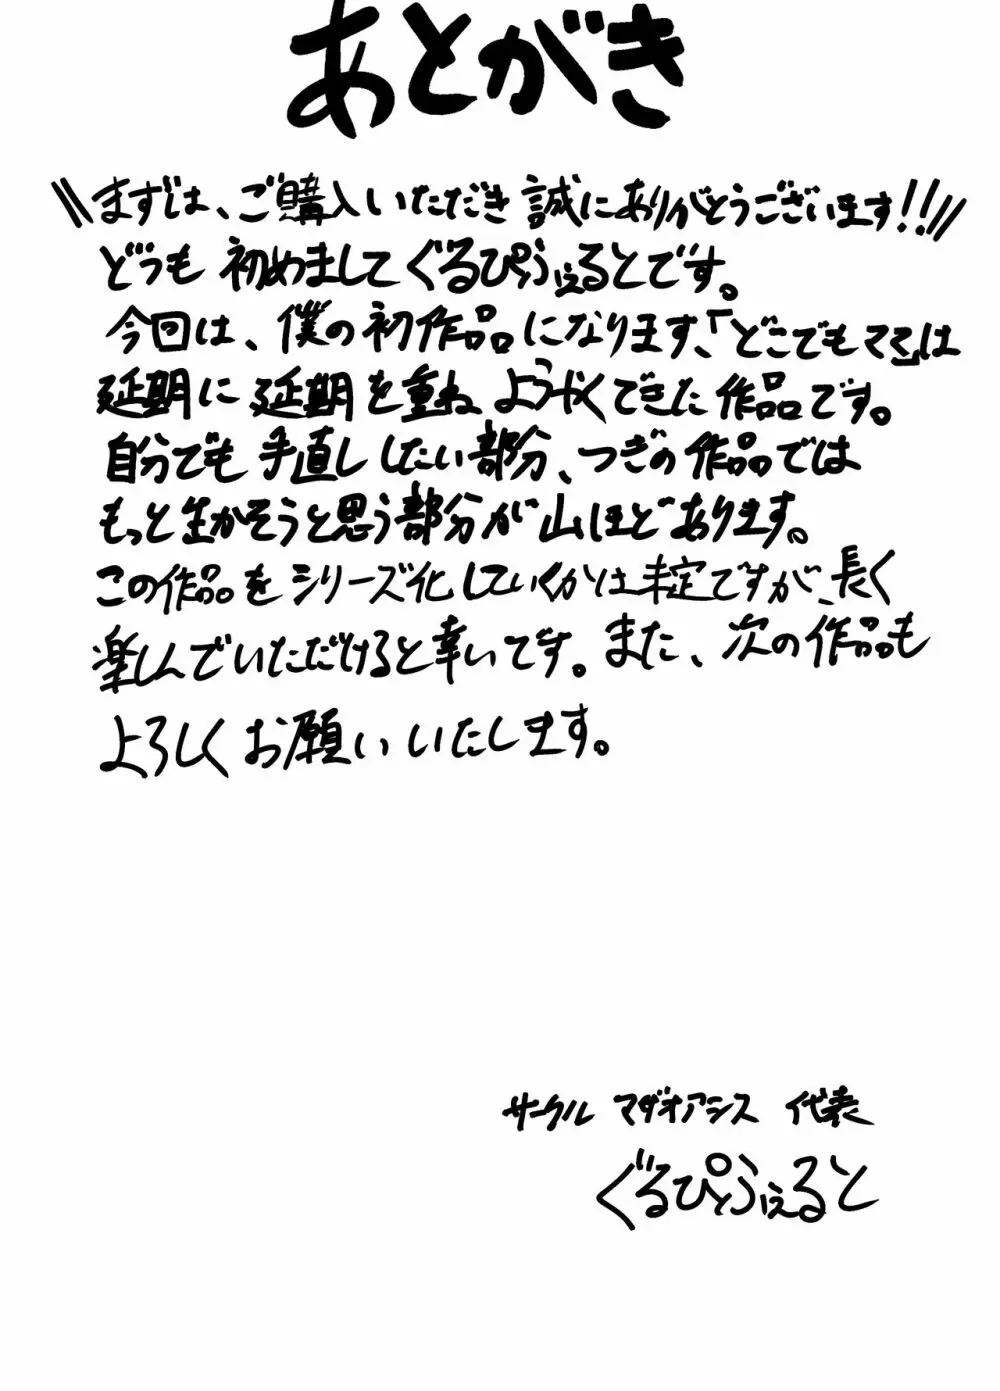 あとがき
\\まずは、ご購入いただき誠にありがとうございます!!//
どうも初めましてぐるぴとふぇるとです。
今回は、僕の初作品になります、「どこでもママ」は
延期に延期を重ねようやくできた作品です。
自分でも手直ししたい部分、つぎの作品では
もっと生かそうと思う部分が山ほどあります。
この作品をシリーズ化していくかは未定ですが、長く
楽しんでいただけると幸いです。また、次の作品も
よろしくお願いいたします。
サークル マザオアシス 代表
ぐるぴとふぇると